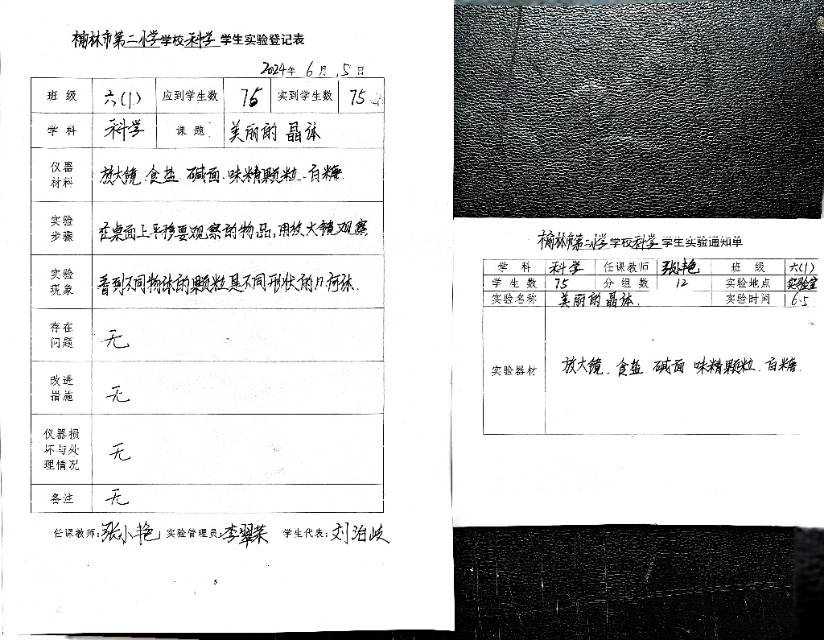 榆林市第二小学学校科学学生实验登记表
2024年 6月 5日
班级 六(1) 应到学生数 75 实到学生数 75
学科 科学 课题 美丽的晶体
仪器材料 放大镜、食盐 碱面、味精颗粒、白糖
实验步骤 在桌面上平移要观察的物品,用放大镜观察
实验现象 看到不同物体的颗粒是不同形状的几何体.
存在问题 无
改进措施 无
仪器损坏与处理情况 无
备注 无
任课教师:张小艳 实验管理员:李翠荣 学生代表:刘泊岐
榆林市第二小学学校科学学生实验通知单
学科 科学 任课教师 张小艳 班级 六(1)
学生数 75 分组数 12 实验地点 实验室
实验名称 美丽的晶体. 实验时间 6.5
实验器材 放大镜、食盐 碱面 味精颗粒、白糖